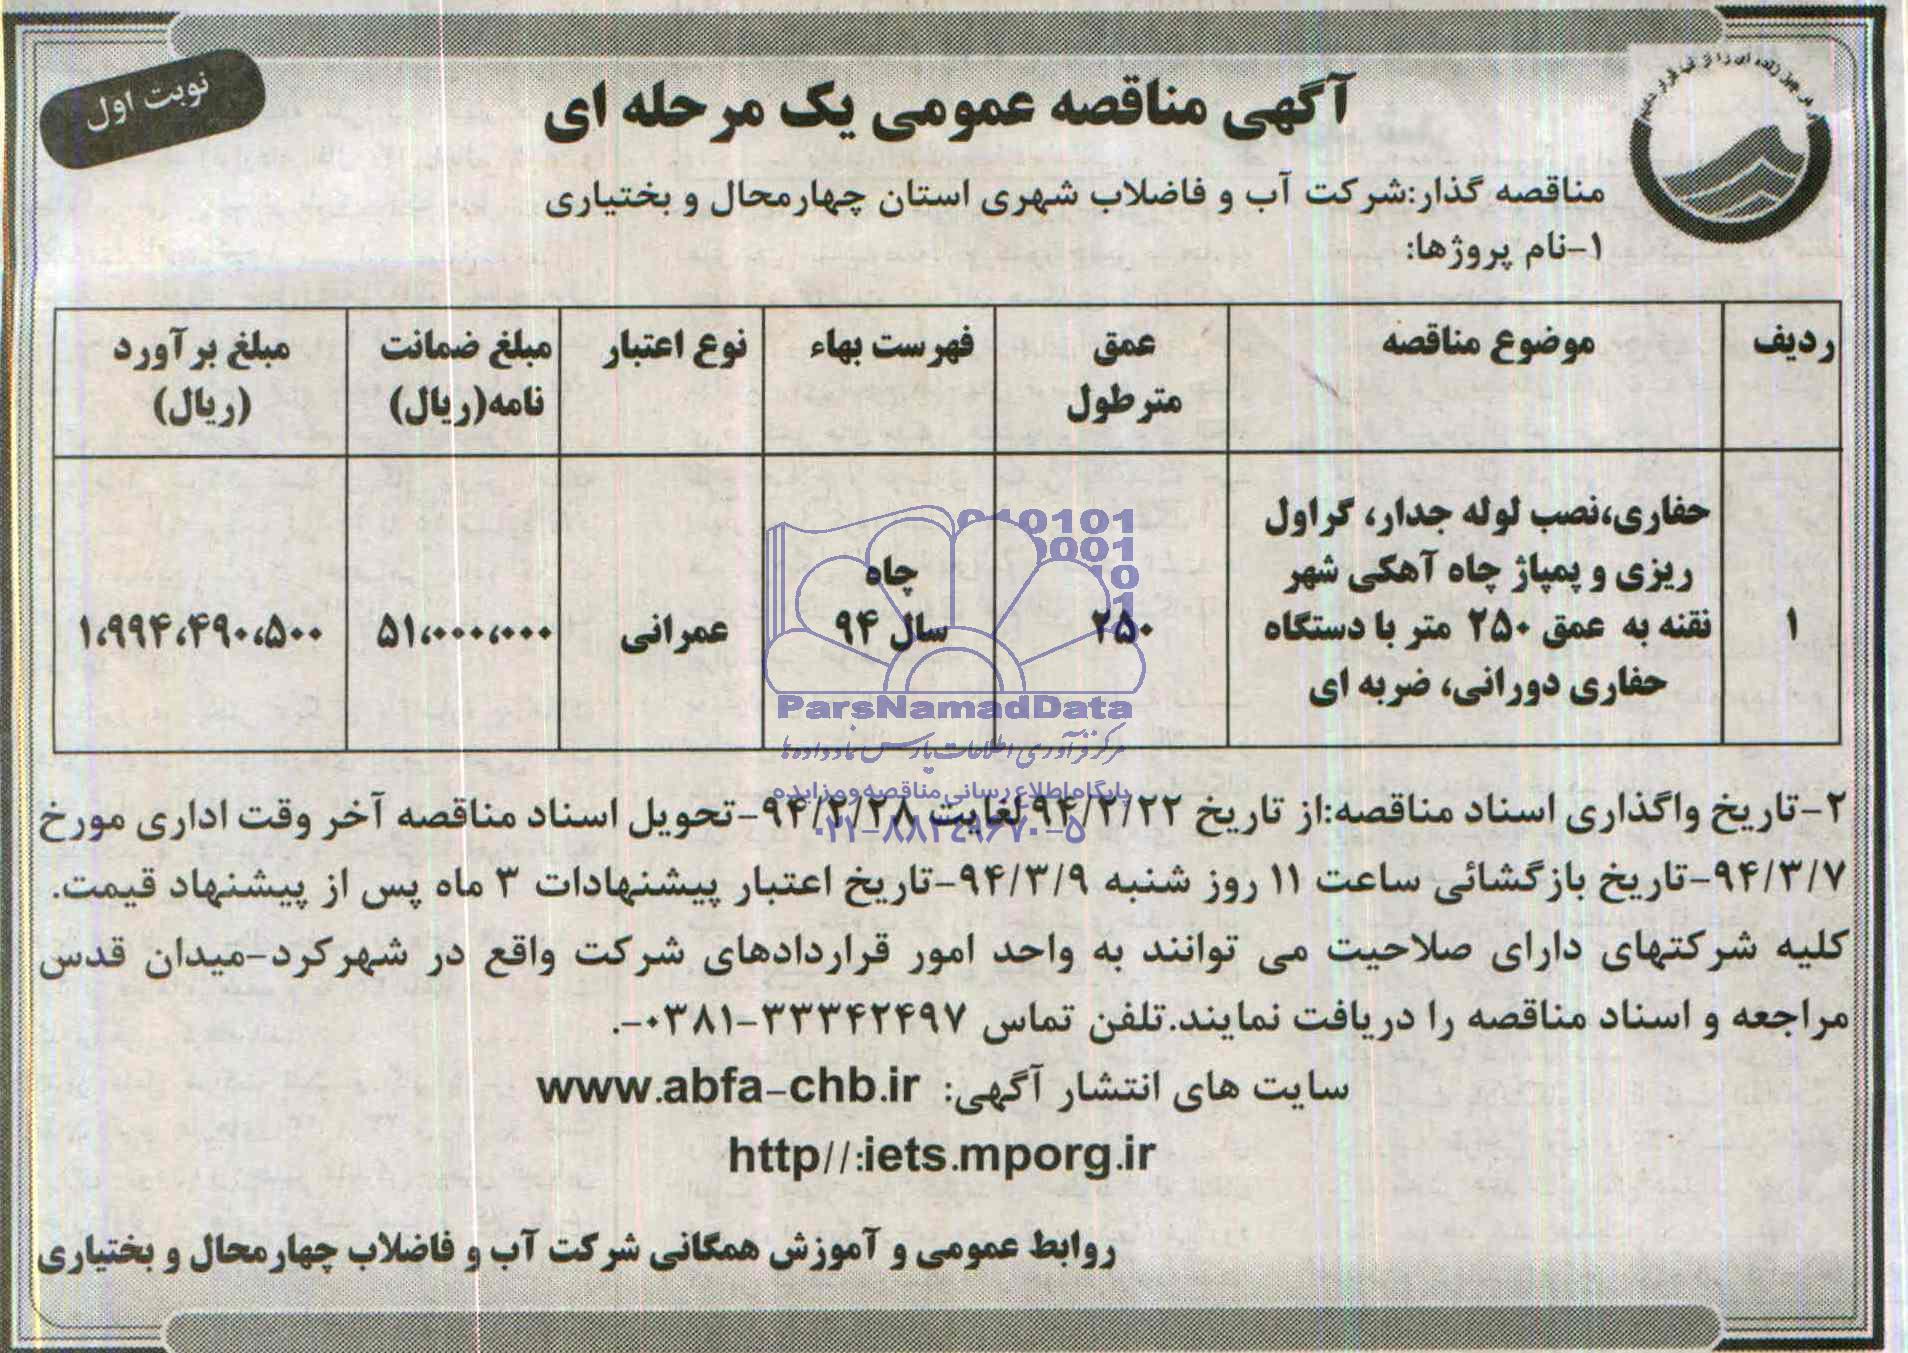 نوبت اول
آگهی مناقصه عمومی یک مرحله ای
مناقصه گذار:شرکت آب و فاضلاب شهری استان چهارمحال و بختیاری
۱-نام پروژها:
ردیف
موضوع مناقصه
عمق
مترطول
فهرست بهاء
نوع اعتبار
مبلغ ضمانت
نامه(ریال)
مبلغ برآورد
(ریال)
۱
حفاری،نصب لوله جدار، گراول
ریزی و پمپاژ چاه آهکی شهر
نقنه به عمق ۲۵۰ متر با دستگاه
حفاری دورانی، ضربه ای
۲۵۰
چاه
سال ۹۴
عمرانی
۵۱،۰۰۰،۰۰۰
۱،۹۹۴،۴۹۰،۵۰۰
010101
0001
10
1
ParsNamadData
مرکز فرآوری اطلاعات پارس نماد داده ها
پایگاه اطلاع رسانی مناقصه و مزایده
۰۲۱-۸۸۳۴۹۶۷۰-۵
۲-تاریخ واگذاری اسناد مناقصه:از تاریخ ۹۴/۲/۲۲ لغایت ۹۴/۲/۲۸-تحویل اسناد مناقصه آخر وقت اداری مورخ
۹۴/۳/۷-تاریخ بازگشائی ساعت ۱۱ روز شنبه ۹۴/۳/۹-تاریخ اعتبار پیشنهادات ۳ ماه پس از پیشنهاد قیمت.
کلیه شرکتهای دارای صلاحیت می توانند به واحد امور قراردادهای شرکت واقع در شهرکرد-میدان قدس
مراجعه و اسناد مناقصه را دریافت نمایند.تلفن تماس ۳۳۳۴۲۴۹۷-۰۳۸۱-.
سایت های انتشار آگهی: www.abfa-chb.ir
http//:iets.mporg.ir
روابط عمومی و آموزش همگانی شرکت آب و فاضلاب چهارمحال و بختیاری